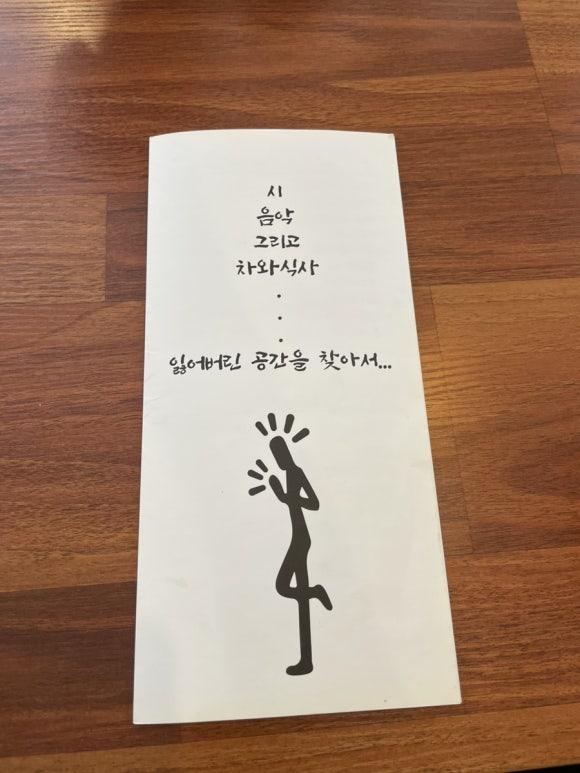 시
음악
그리고
차와식사
.
.
.
잃어버린 공간을 찾아서...